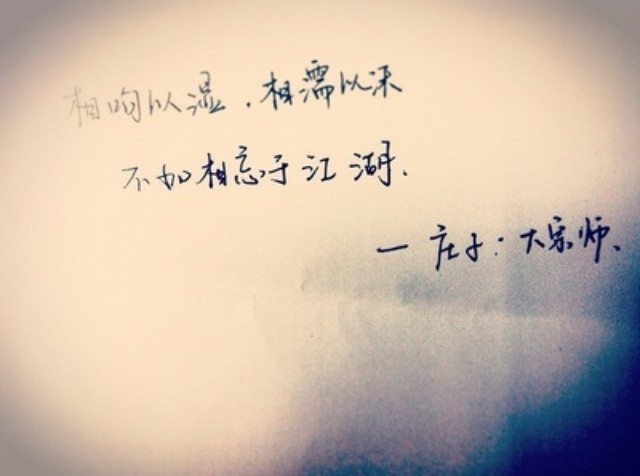 相呴以湿,相濡以沫
不如相忘于江湖.
— 庄子:大宗师、